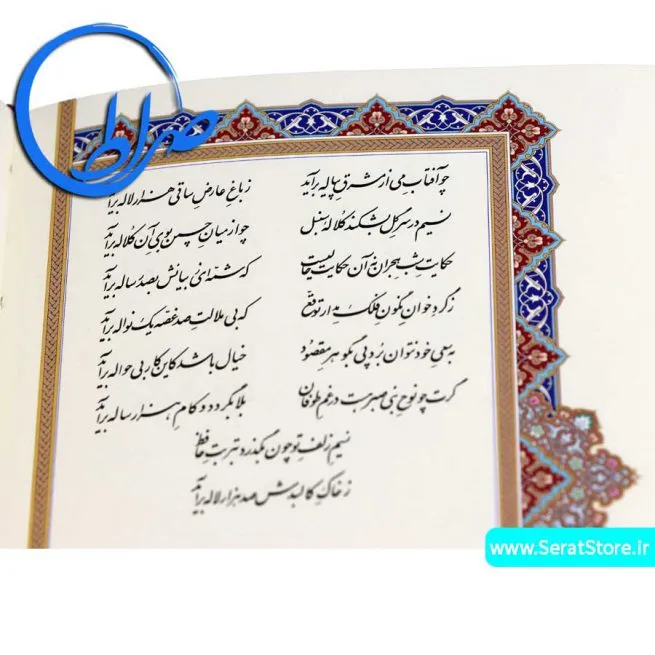 صراط
چو آفتاب می از مشرق پیاله برآید ز باغ عارض ساقی هزار لاله برآید
نسیم در سر گل بشکند کلاله سنبل چو از میان چمن بوی آن کلاله برآید
حکایت شب هجران نه آن حکایت حالیست که شمّه‌ئی ز بیانش بصد رساله برآید
ز گرد خوان نگون فلک مدار توقّع که بی ملالت صد غصّه یک نواله برآید
به سعی خود نتوان برد پی بگوهر مقصود خیال باشد کاین کار بی حواله برآید
گرت چو نوح نبی صبر هست در غم طوفان بلا بگردد و کام هزار ساله برآید
نسیم زلف تو چون بگذرد بتربت حافظ
ز خاک کالبدش صد هزار لاله برآید
www.SeratStore.ir